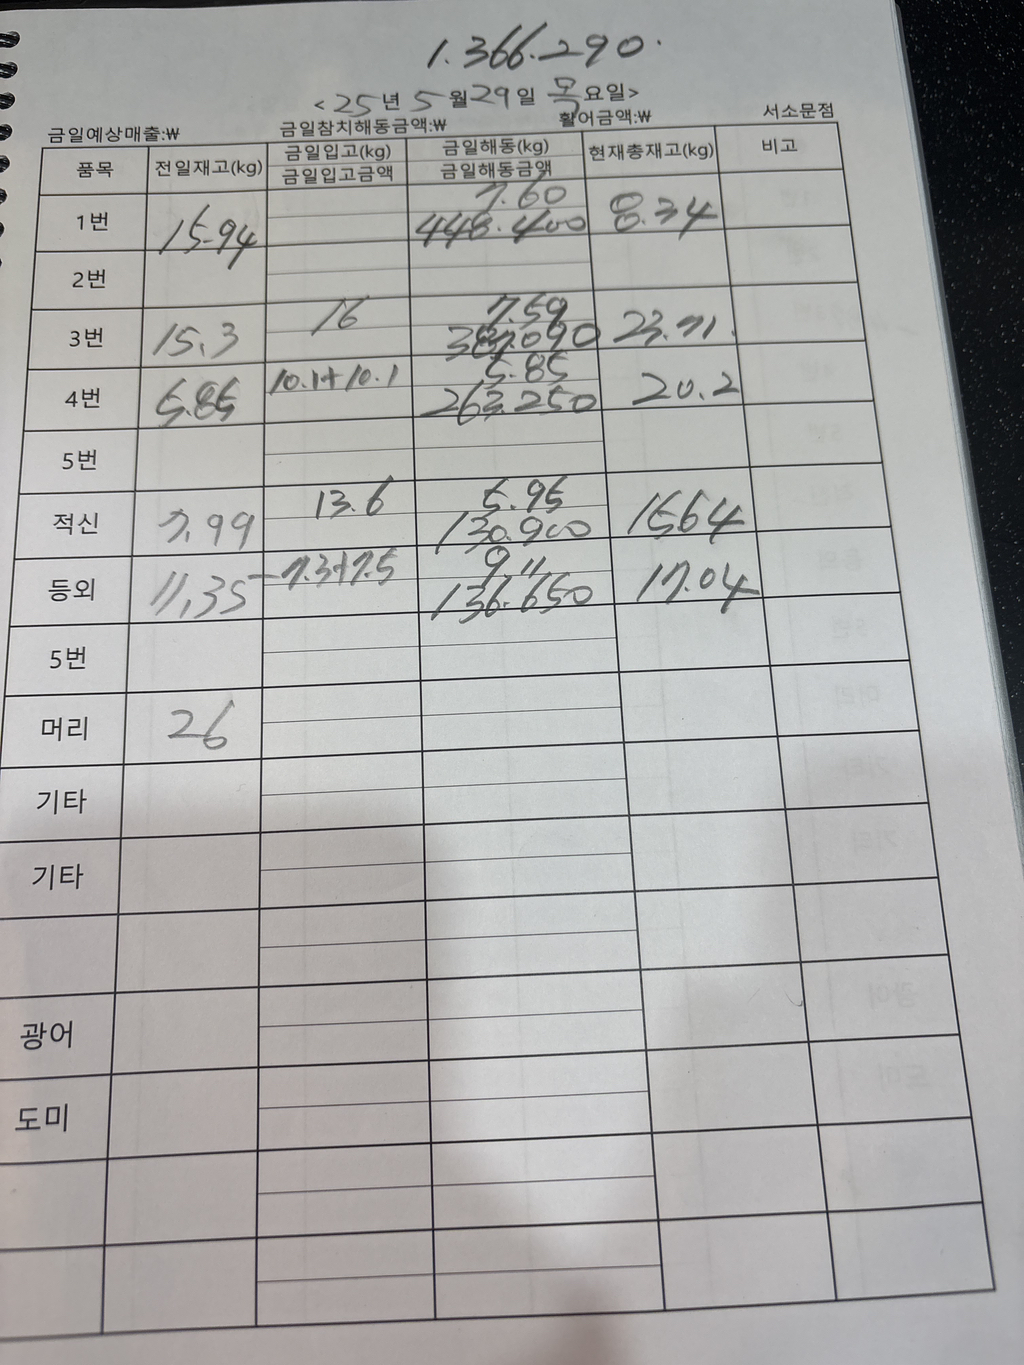 1.366.290.
<25년 5월29일 목요일>
금일예상매출:₩ 금일참치해동금액:₩ 활어금액:₩ 서소문점
품목 전일재고(kg) 금일입고(kg) 금일해동(kg) 현재총재고(kg) 비고
금일입고금액 금일해동금액
1번 15.94 7.60 8.34
448.400
2번
3번 15.3 16 7.59 23.71.
387.090
4번 5.85 10.1+10.1 5.85 20.2
263.250
5번
적신 7.99 13.6 5.95 15.64
130.900
등외 11,35 7.3+7.5 9.11 17.04
136.650
5번
머리 26
기타
기타
광어
도미